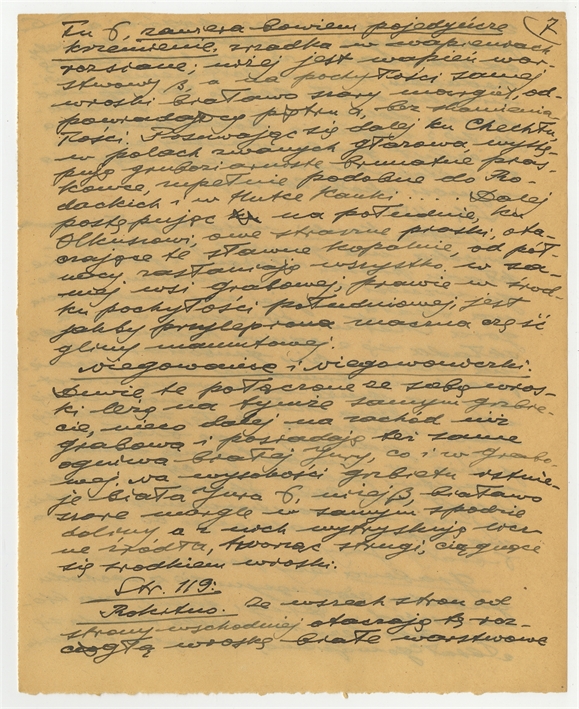 7
Tu δ, zawiera bowiem pojedyńcze
krzemienie, zrzadka w wapieniach
rozsiane; niżej jest wapień war-
stwowy β, a za pochyłości samej
wioski białawo szary margiel, od-
powiadający piętru α, bez skamienia-
łości. Posuwając się dalej ku Chechłu
w polach zwanych głazowa, wystę-
pują gruboziarniste brunatne pias-
kowce, zupełnie podobne do Ro-
dackich i w Hutce Kanki .... Dalej
postępując na południe, ku
Olkuszowi, owe straszne piaski, ota-
czające te sławne kopalnie, od pół-
nocy zasłaniają wszystko. w sa-
mej wsi grabowej, prawie w środ-
ku pochyłości południowej, jest
jakby przylepiona znaczna część
gliny mamutowej.
Niegowanice i Niegowoniczki.
Dwie te połączone ze sobą wios-
ki leżą na tymże samym grzbie-
cie, nieco dalej na zachód niż
grabowa i posiadają też same
ogniwa białej Jury, co i w grabo-
wej. Na wysokości grzbietu istnie-
je biała Jura δ, niżej β, białawo
szare margle w samym spodzie
doliny a z nich wytryskują licz
ne źródła, tworząc strugi, ciągnące
się środkiem wioski.
Str. 119:
Rokitno. Ze wszech stron od
strony wschodniej otaczają tą roz-
ciągłą wioskę białe warstwowe